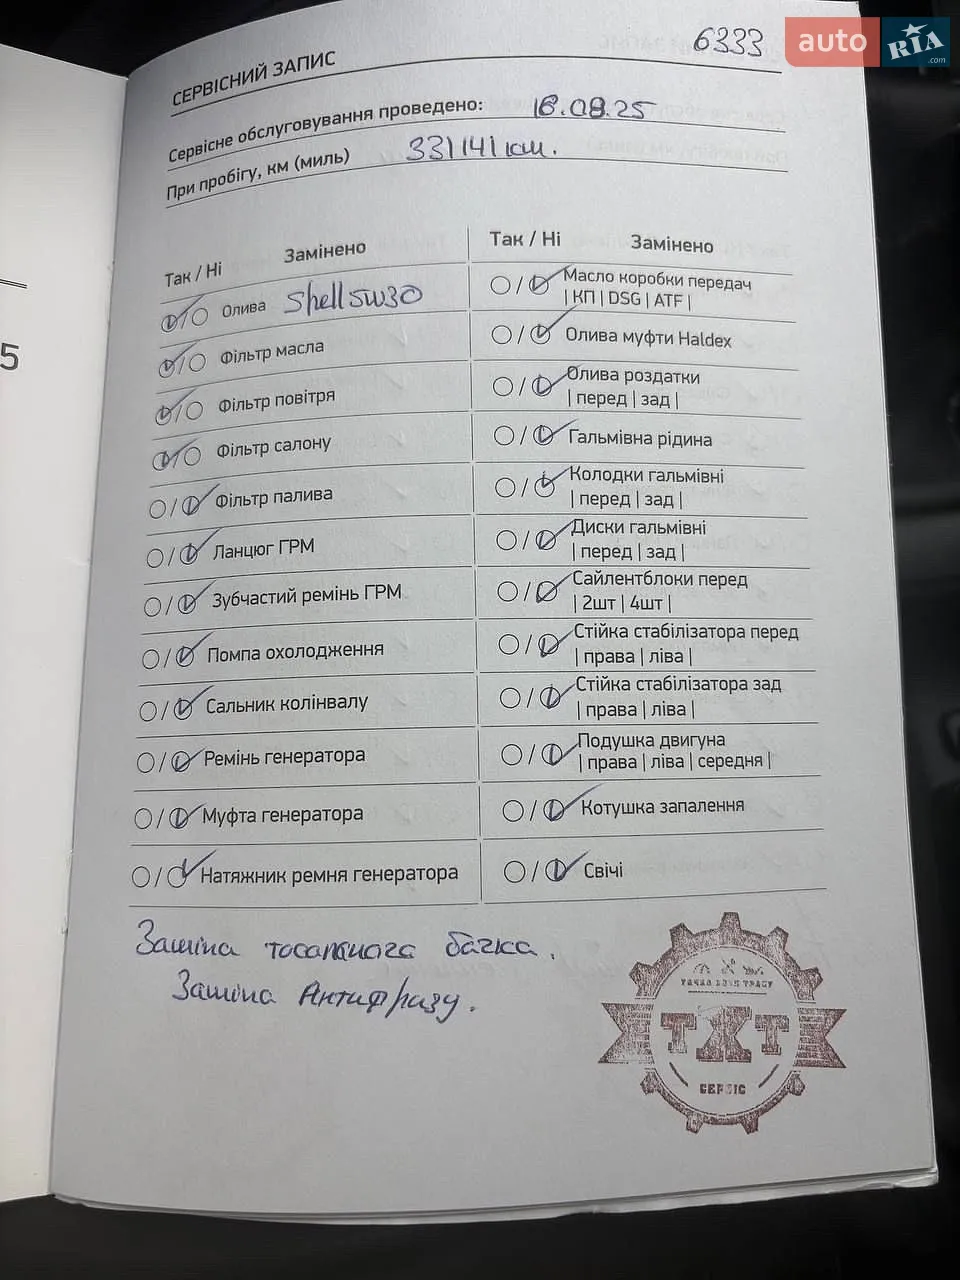 6333
auto RIA .com
СЕРВІСНИЙ ЗАПИС
Сервісне обслуговування проведено: 18.09.25
При пробігу, км (миль) 331141 км.
Так / Ні Замінено
Олива Shell 5W30
Фільтр масла
Фільтр повітря
Фільтр салону
Фільтр палива
Ланцюг ГРМ
Зубчастий ремінь ГРМ
Помпа охолодження
Сальник колінвалу
Ремінь генератора
Муфта генератора
Натяжник ремня генератора
Так / Ні Замінено
Масло коробки передач
| КП | DSG | ATF |
Олива муфти Haldex
Олива роздатки
| перед | зад |
Гальмівна рідина
Колодки гальмівні
| перед | зад |
Диски гальмівні
| перед | зад |
Сайлентблоки перед
| 2шт | 4шт |
Стійка стабілізатора перед
| права | ліва |
Стійка стабілізатора зад
| права | ліва |
Подушка двигуна
| права | ліва | середня |
Котушка запалення
Свічі
Заміна тосольного бачка.
Заміна Антифризу.
ТХТ
СЕРВІС
5